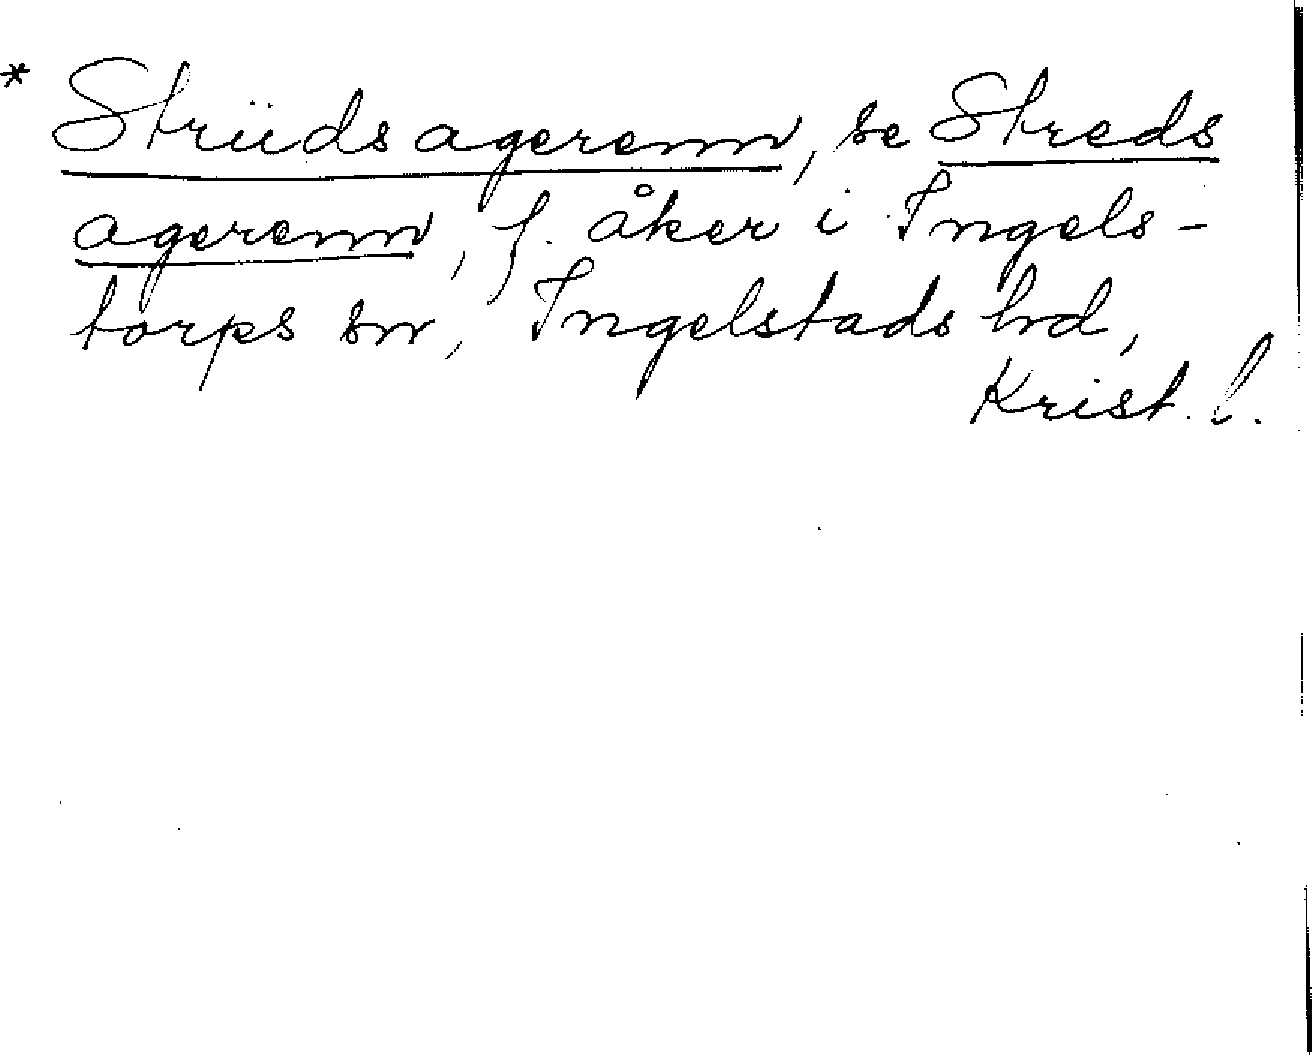 * Strüds agerenn, se Streds
agerenn, f. åker i Ingels-
torps sn, Ingelstads hd,
Krist. l.